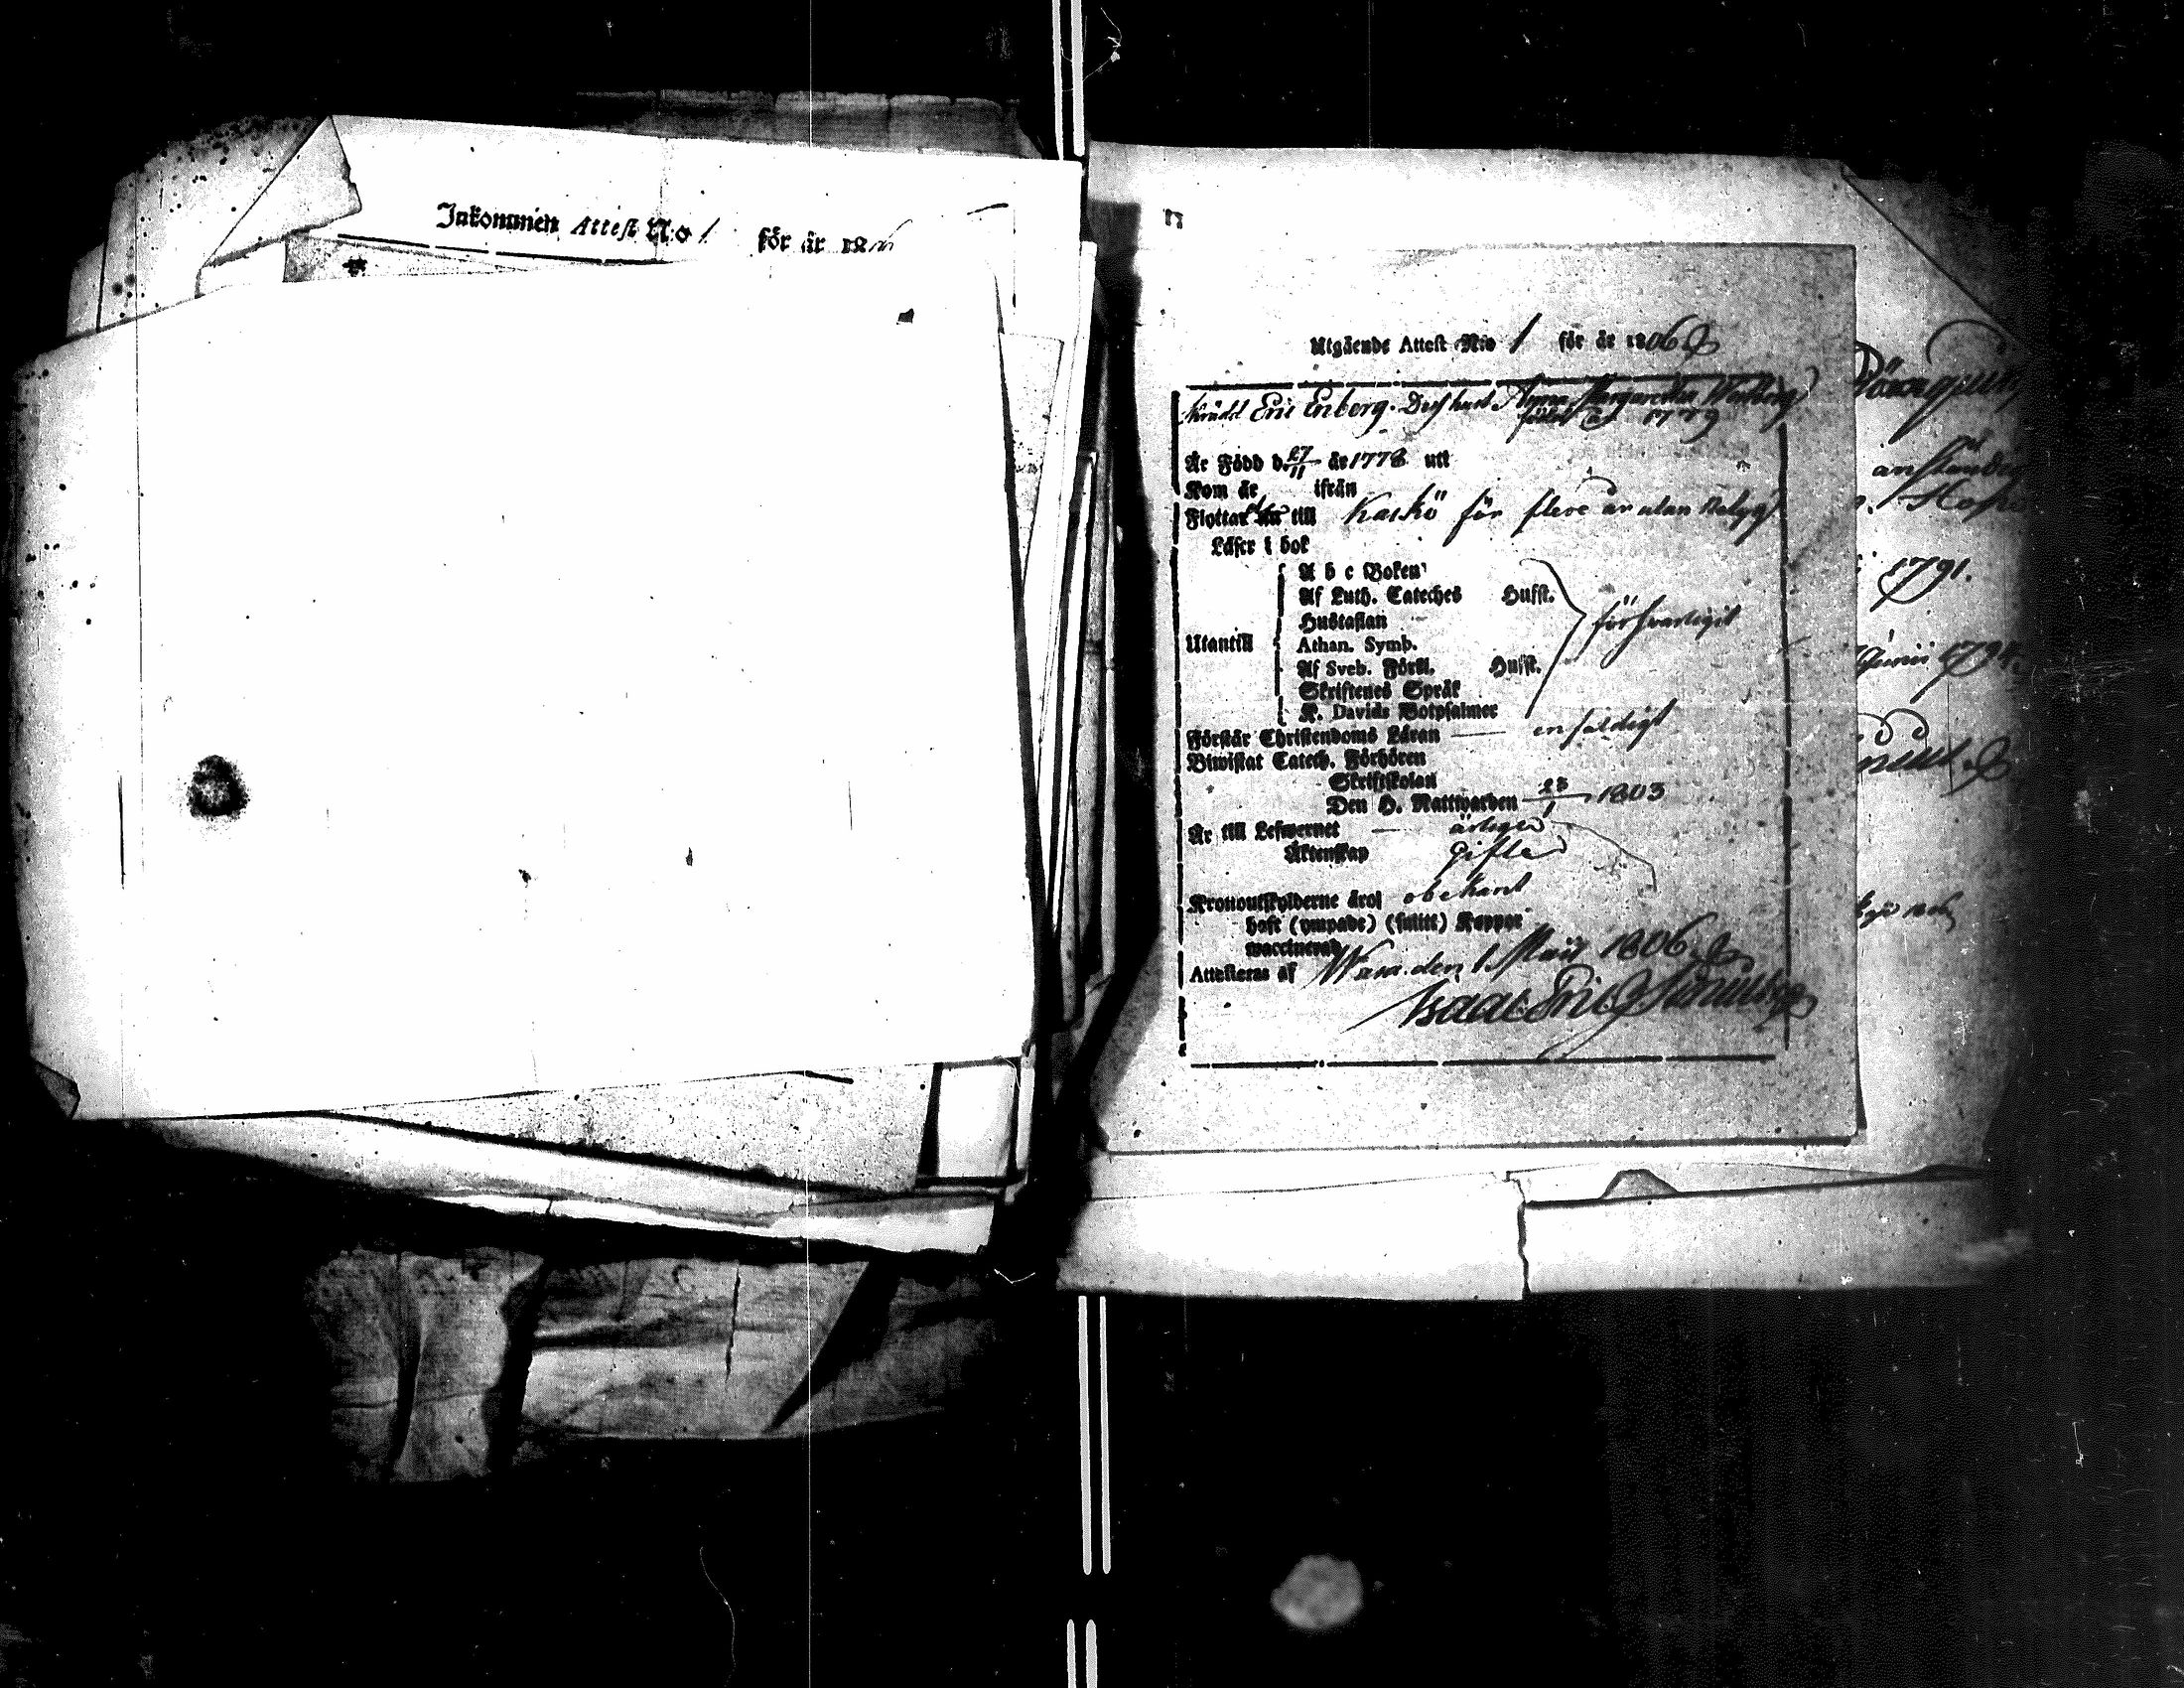 Inkommen Attest N:o 1 för år 180
Utgående Attest N:o 1 för år 1806
Eric Enborg. Dess hust. Anna Margaretha
född år 1779
Är Född d. 27/11 år 1778 uti
Kom år ifrån
Flyttar till Kaskö för flere år utan betyg
Läser i bok
A b c Boken
Af Luth. Cateches Hufst.
Hustaflan
Utantill Athan. Symb. försvarligit
Af Sveb. Förkl. Hufst.
Skriftenes Språk
K. Davids Botpsalmer
Förstår Christendoms Läran enfaldigt
Biwistat Catech. Förhören
Skriftskolan
Den H. Nattwarden 23/1 1803
Är till Lefwernet ärliga
Äktenskap gifte
Kronoutskylderne äro obekant
haft (ympade) (smitt) Koppor
waccinerad
Attesteras af Wasa den 1 Maii 1806
Isaac Eric
1791.
Junii